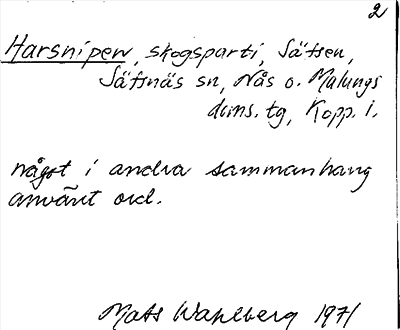 2
Harsnipen, skogsparti, Sätsen,
Säfsnäs sn, Nås o. Malungs
doms. tg, Kopp. l.
något i andra sammanhang
använt ord.
Mats Wahlberg 1971